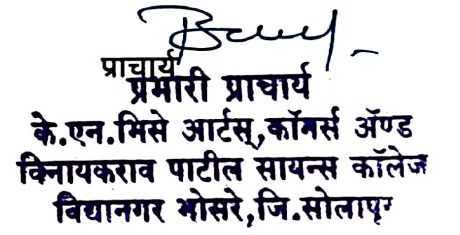 प्राचार्य
प्रभारी प्राचार्य
के.एन.भिसे आर्टस्,कॉमर्स ॲण्ड
विनायकराव पाटील सायन्स कॉलेज
विद्यानगर भोसरे,जि.सोलापूर